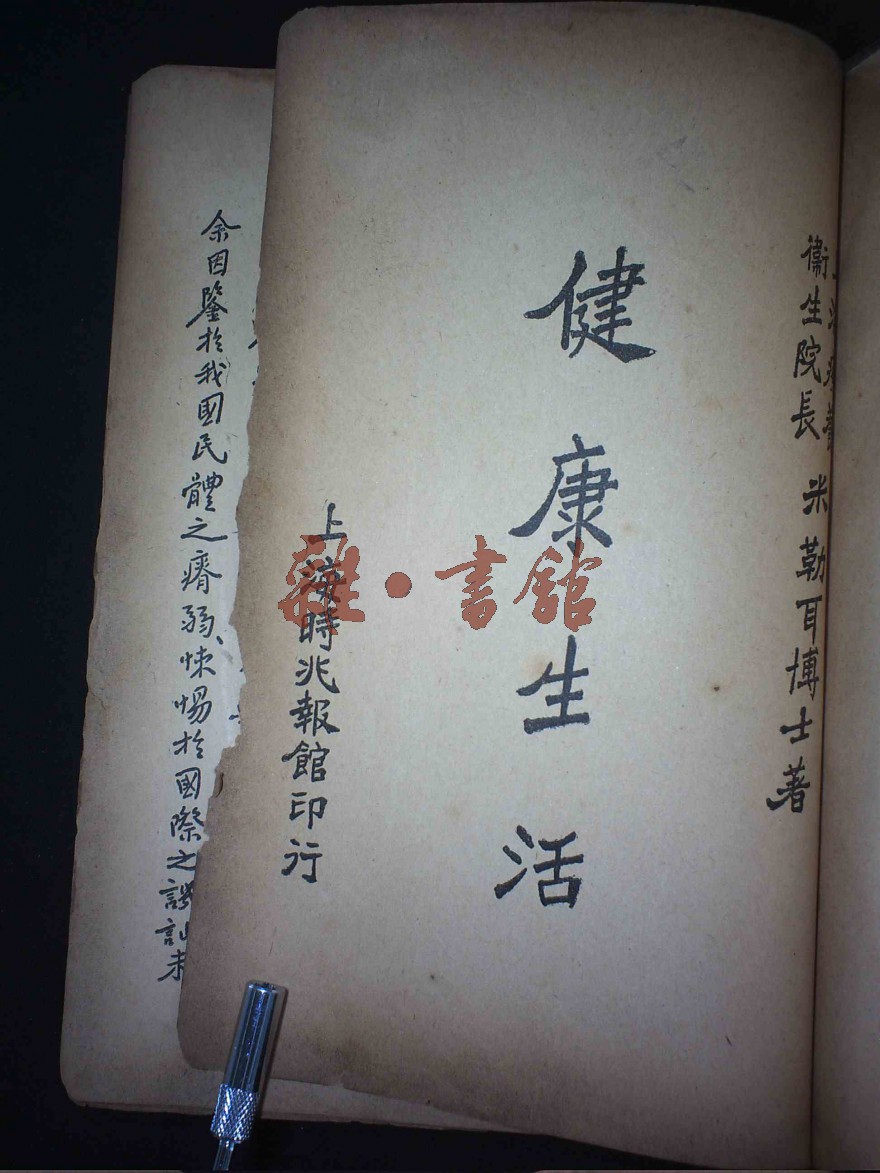 上海療養
衞生院長 米勒耳博士著
健康生活
上海時兆報館印行
余因鑒於我國民體之瘠弱、悚惕於國際之謗訕未
雜·書舘